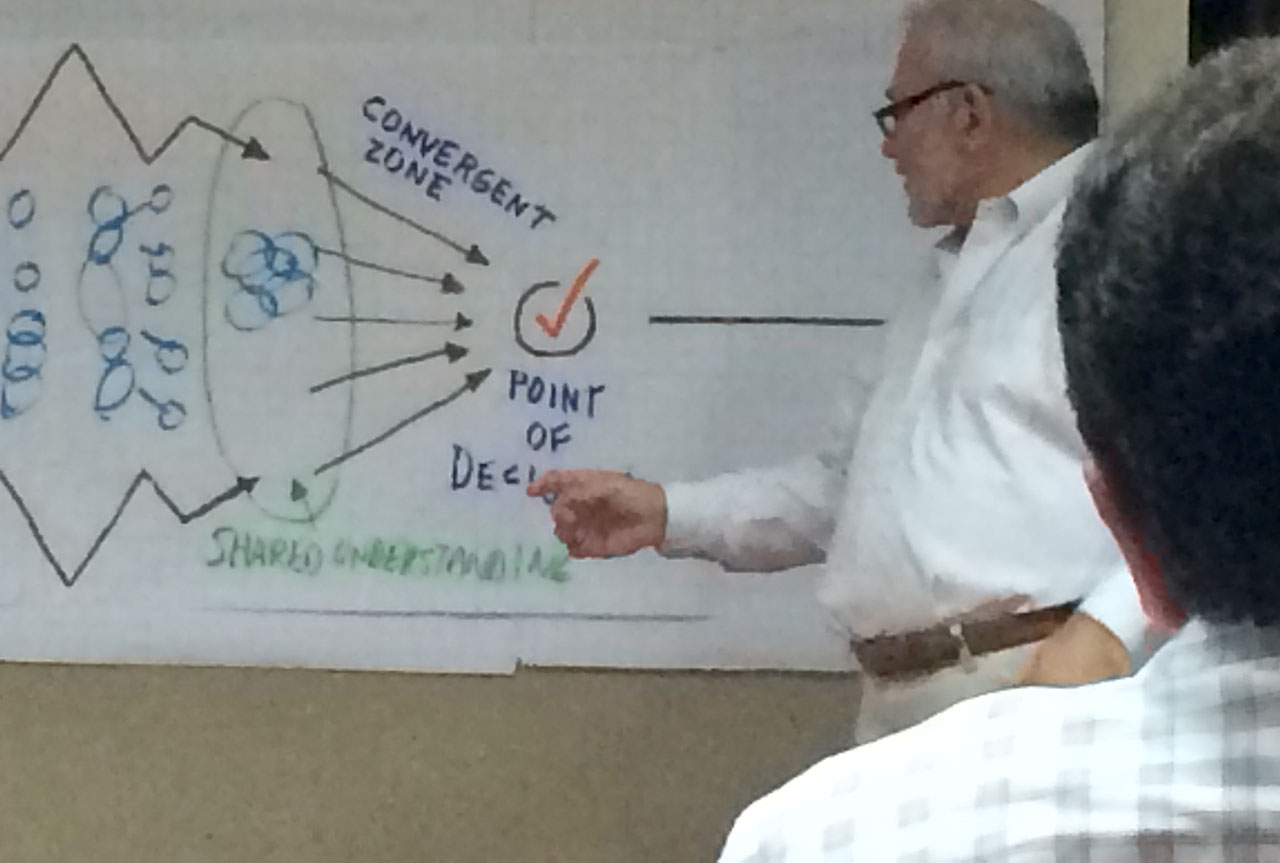 CONVERGENT
ZONE
POINT
OF
DECI
SHARED UNDERSTANDING